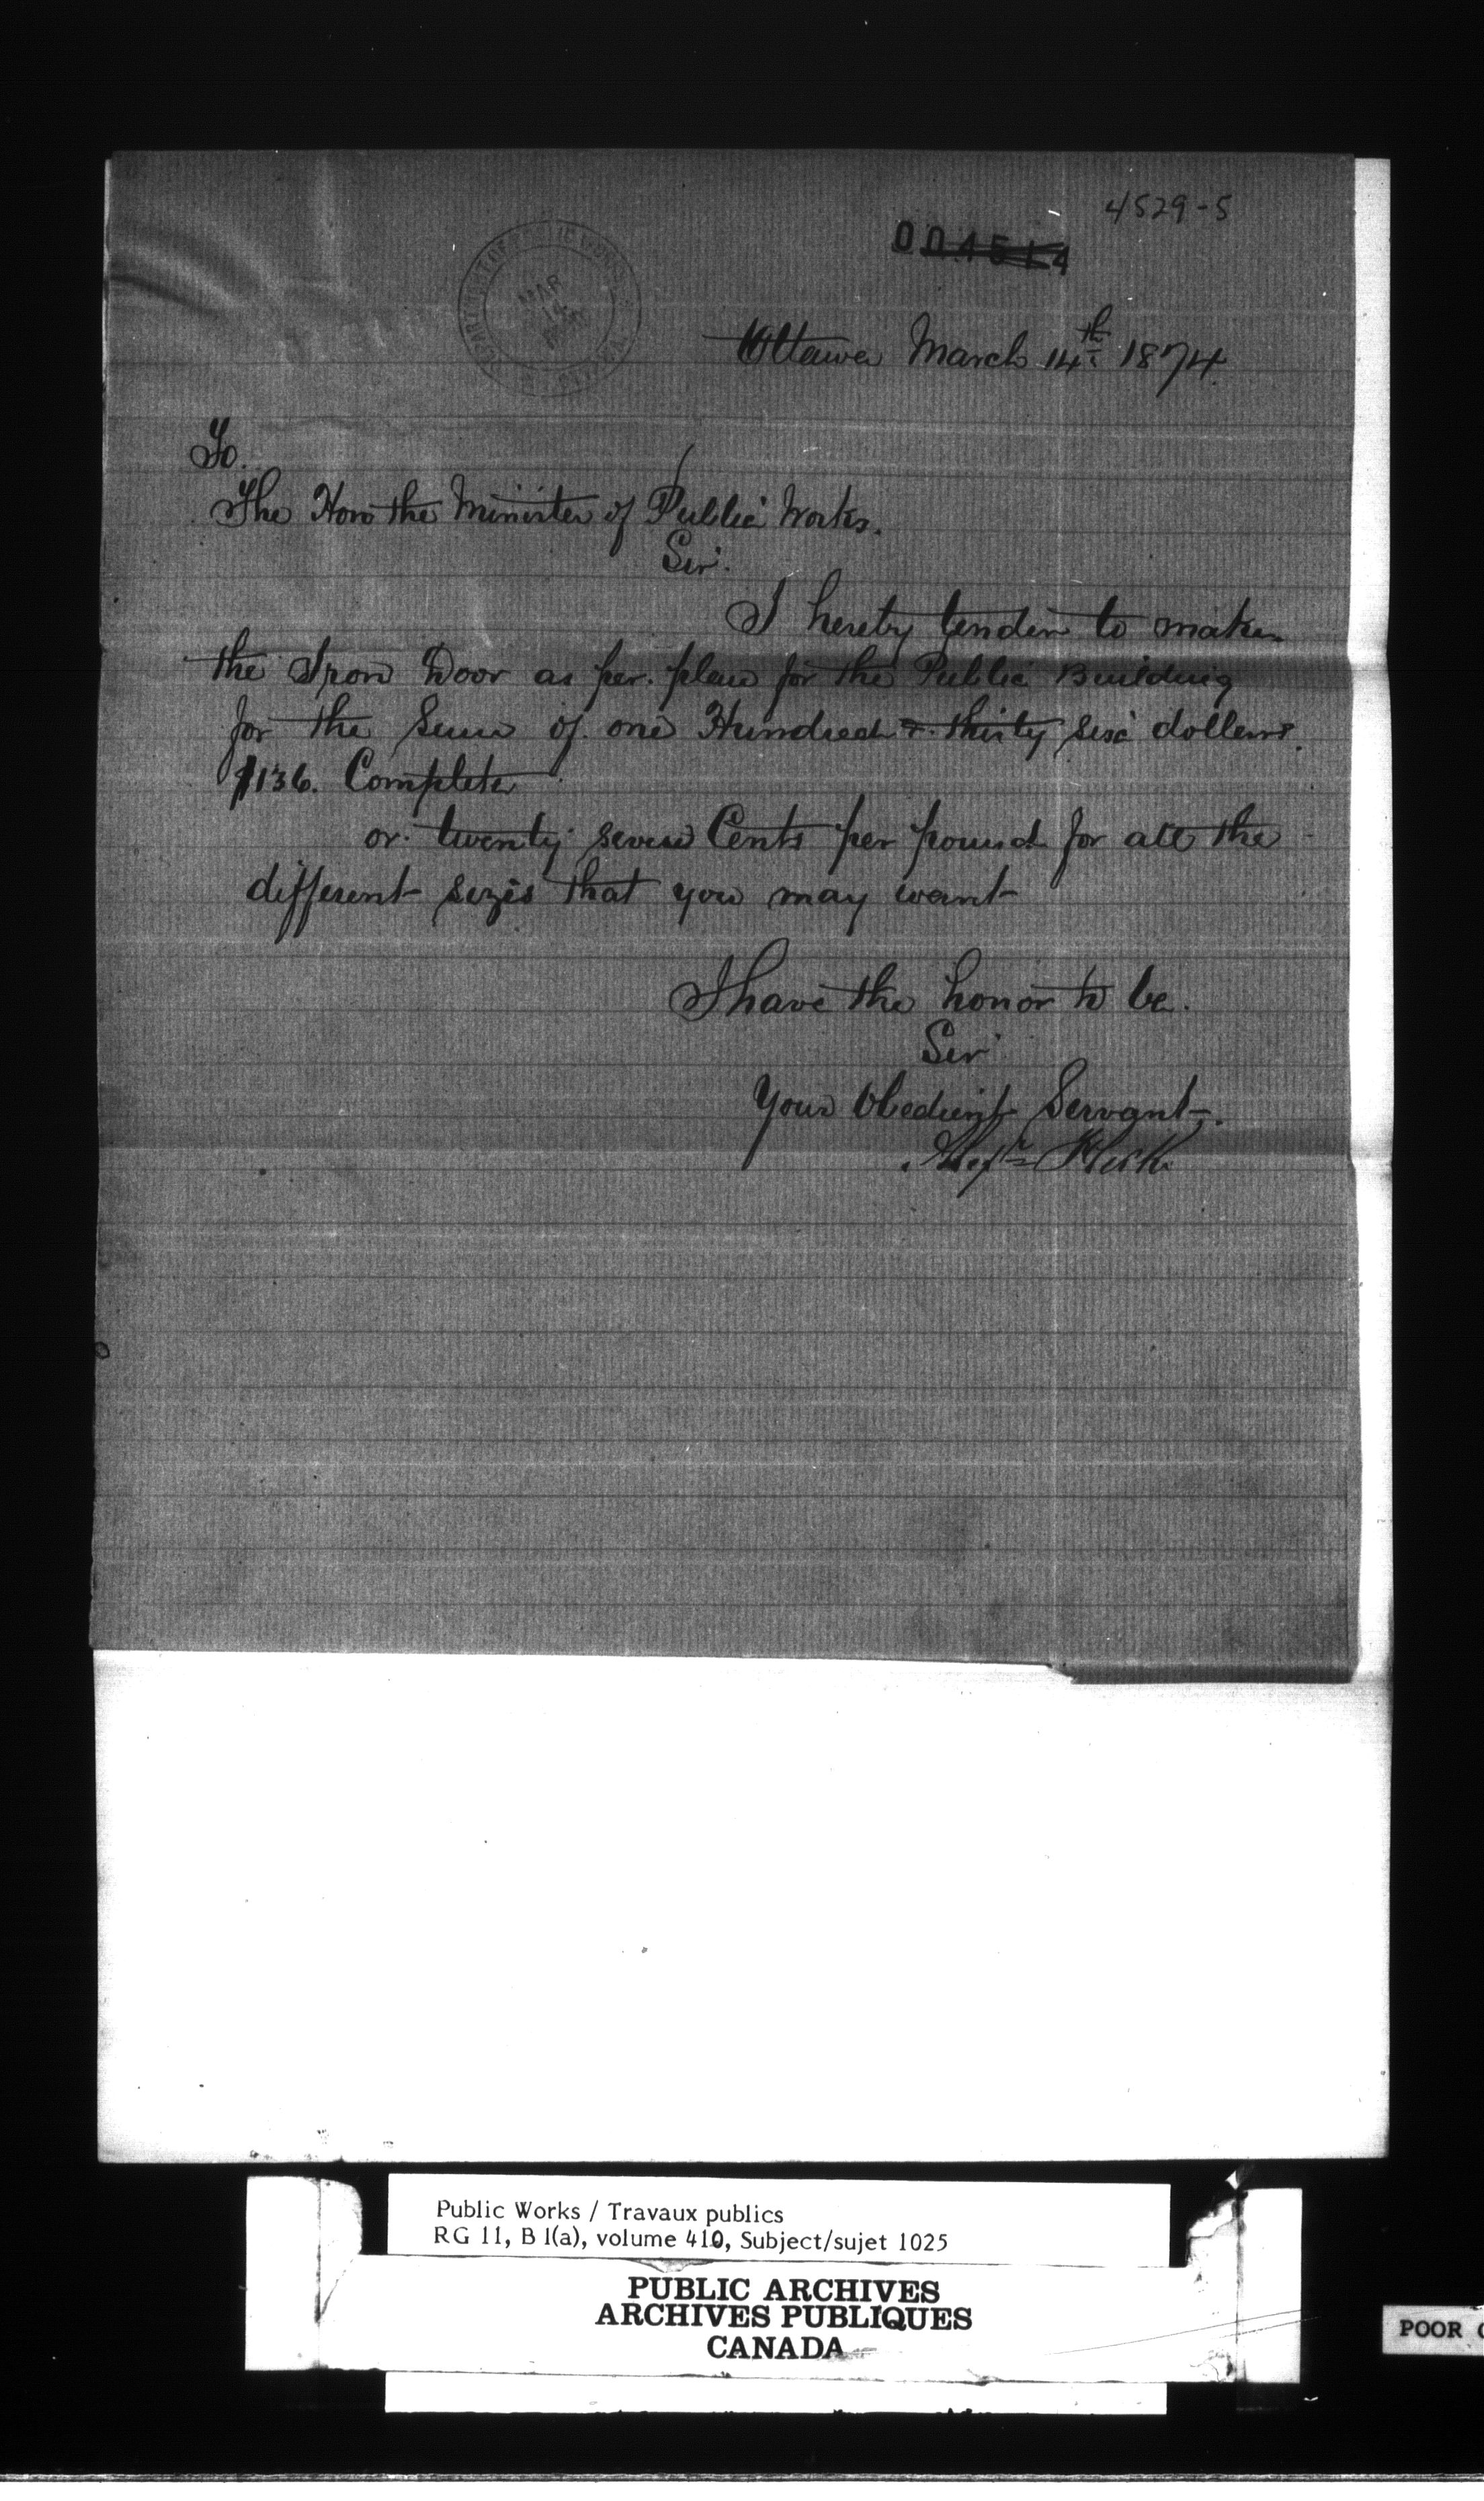 4529-5
004514
DEPARTMENT OF PUBLIC WORKS
MAR
14
Ottawa March 14th 1874.
To.
The Hon the Minister of Public Works.
Sir.
I hereby tender to make
the Iron Door as per. plan for the Public Building
for the Sum of one Hundred & thirty six dollars.
$136. Complete
or twenty seven Cents per pound for all the
different sizes that you may want
I have the honor to be.
Sir
Your Obedient Servant.
Alexr Fleck
Public Works / Travaux publics
RG 11, B 1(a), volume 410, Subject/sujet 1025
PUBLIC ARCHIVES
ARCHIVES PUBLIQUES
CANADA
POOR